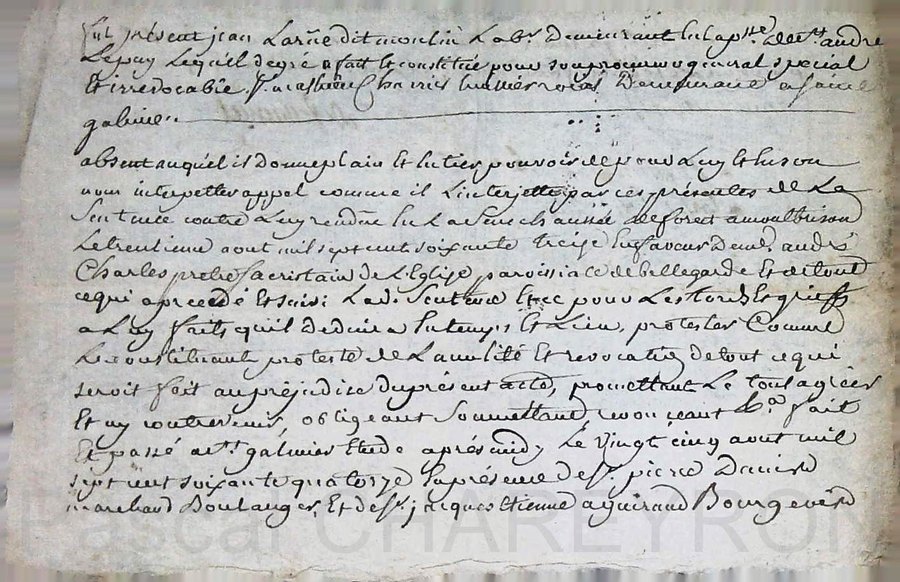 fut présent jean Larüe dit moulin Labr. Demeurant en la psse de st. andré
Lepuy Lequel de gré a fait et constitué pour son procureur general special
Et irrevocable Sr. mathieu Chenris huissier roial Demeurant a saint
galmier
absent auquel il donne plain Et entier pouvoir de pour Luy Et en son
nom interjetter appel comme il L'interjette par ces présentes de La
Sentence contre Luy rendüe En La Senechaussée de forest a montbrison
Le trentieme aout mil sept cent soixante treize En faveur De mre. andré
Charles pretre sacristain de L'Eglise paroissiale de bellegarde Et de tout
ce qui a precedé Et suivi Lad. Sentence Et ce pour Les torts Et griefs
a Luy faits qu'il deduira En temps Et Lieu, protester Comme
Le constituant proteste de La nullité Et revocation de tout ce qui
seroit fait au préjudice du présent acte, promettant Le tout agréer
Et ny contrevenir, obligeant Soumettant renonceant &a. fait
Et passé a st. galmier Etude après midy Le vingt cinq aout mil
sept cent soixante quatorze En présence de sr. pierre
marchand Boulanger, Et de sr. jacques Etienne Bourgeois
Pascal CHAREYRON